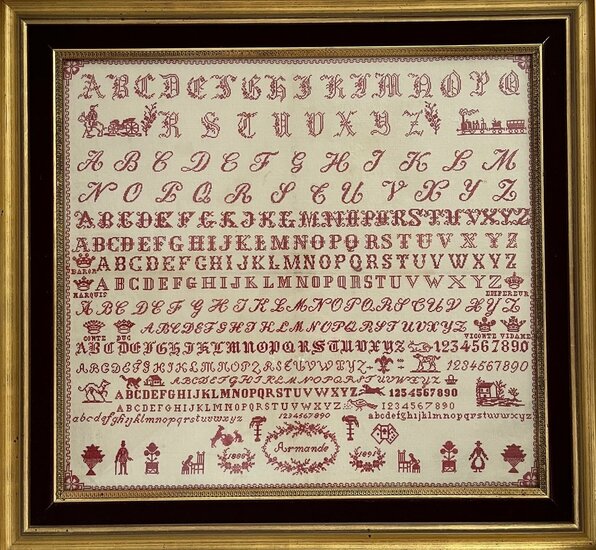 A B C D E F G H I K L M N O P Q
R S T U V X Y Z
A B C D E F G H I K L M
N O P Q R S T U V X Y Z
ABCDEFGHIJKLMNOPQRSTUVXYZ
ABCDEFGHIJKLMNOPQRSTUVXYZ
BARON ABCDEFGHIJKLMNOPQRSTUVWXYZ
MARQUIS ABCDEFGHIJKLMNOPQRSTUVWXYZ EMPEREUR
ABCDEFGHIKLMNOPQRSTUVXYZ
COMTE DUC ABCDEFGHIKLMNOPQRSTUVXYZ VICOMTE VIDAME
ABCDEFGHIJKLMNOPQRSTUVXYZ 1234567890
ABCDEFGHIJKLMNOPQRSTUVWXYZ 1234567890
ABCDEFGHIJKLMNOPQRSTUVWXYZ
ABCDEFGHIJKLMNOPQRSTUVWXYZ 1234567890
ABCDEFGHIJKLMNOPQRSTUVWXYZ 1234567890
abcdefghijklmnopqrstuvwxyz 1234567890 abcdefghijklmnopqrstuvwxyz
Armande
1891